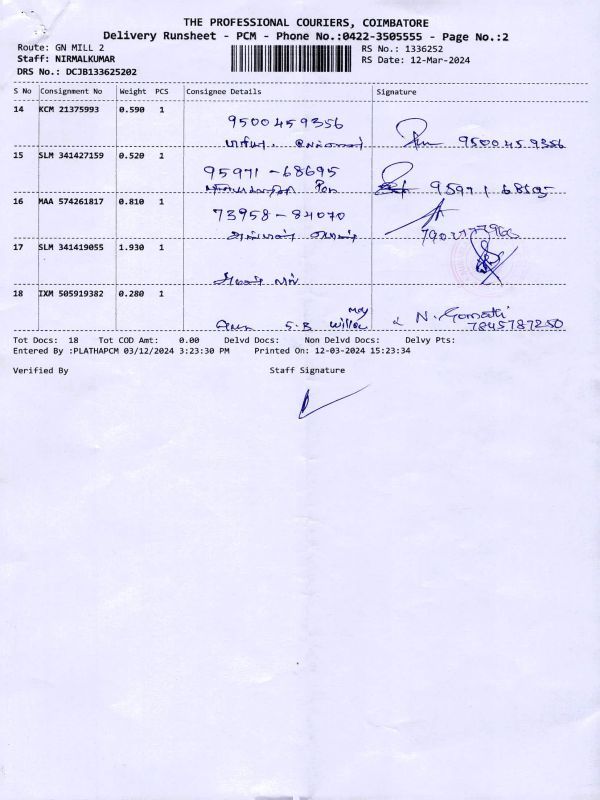 THE PROFESSIONAL COURIERS, COIMBATORE
Delivery Runsheet - PCM - Phone No.:0422-3505555 - Page No.:2
Route: GN MILL 2
RS No.: 1336252
Staff: NIRMALKUMAR
RS Date: 12-Mar-2024
DRS No.: DCJB133625202
S No Consignment No Weight PCS Consignee Details Signature
14 KCM 21375993 0.590 1
9500459356
9500459356
15 SLM 341427159 0.520 1
95971-68695
95971 68695
16 MAA 574261817 0.810 1
73958-84070
17 SLM 341419055 1.930 1
18 IXM 505919382 0.280 1
S.B N. Gomati
7845787250
Tot Docs: 18 Tot COD Amt: 0.00 Delvd Docs: Non Delvd Docs: Delvy Pts:
Entered By :PLATHAPCM 03/12/2024 3:23:30 PM Printed On: 12-03-2024 15:23:34
Verified By Staff Signature